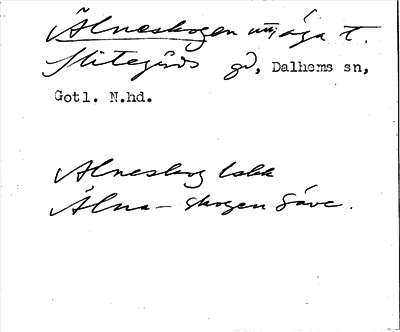 Älneskogen utjäga t.
Slitegårds gd, Dalhems sn,
Gotl. N.hd.
Älneskog Lskk
Älna-skogen Säve.